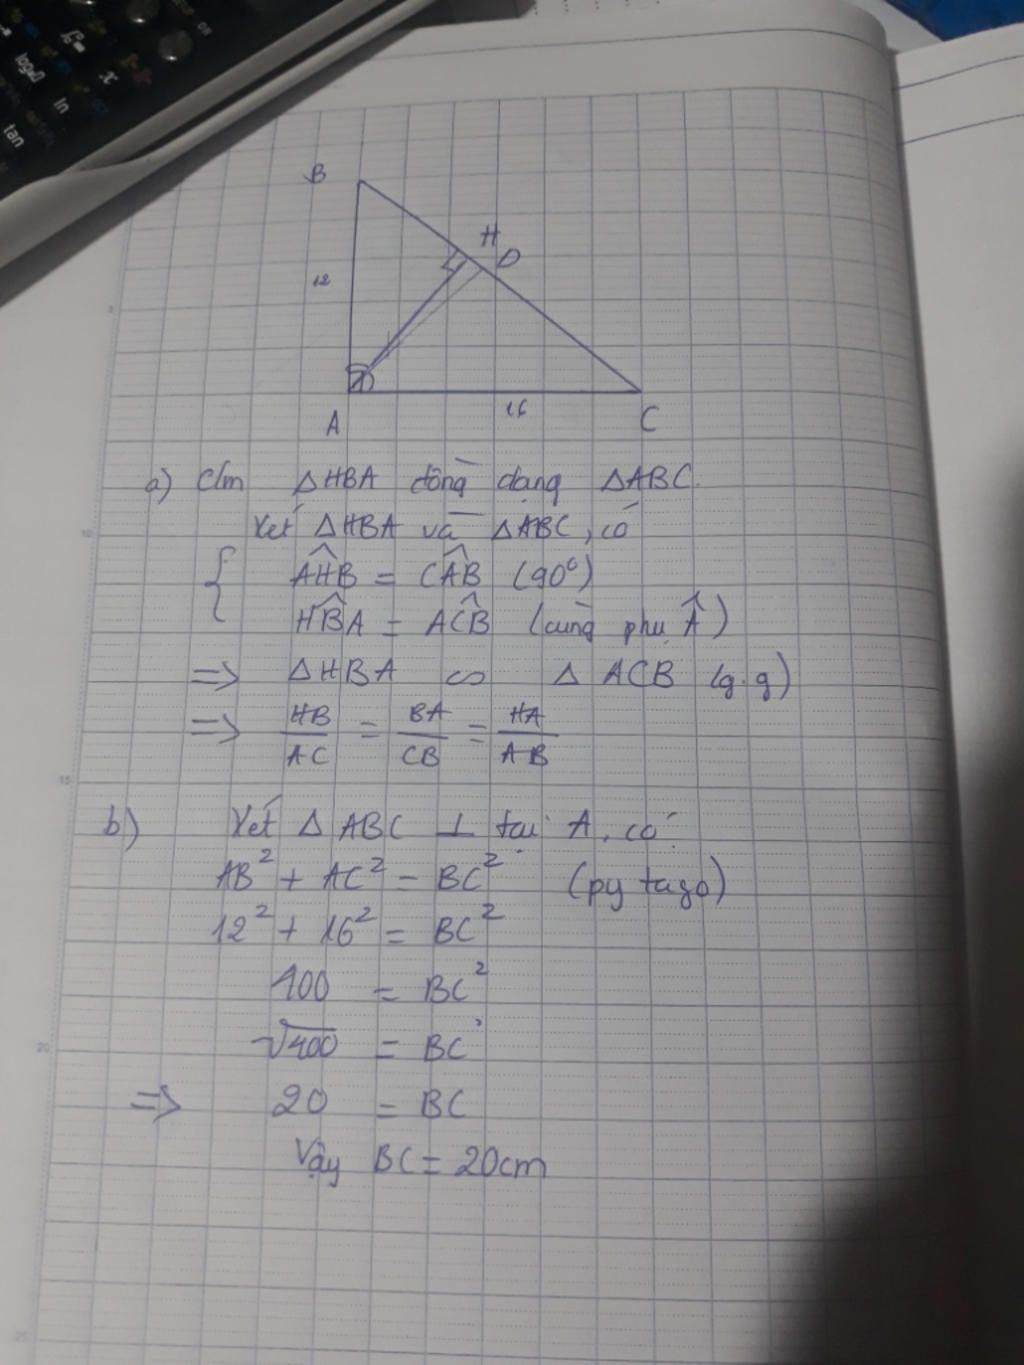 DR
log₂0
ln
x
tan
B
H
D
12
A
16
C
5
a) C/m ΔHBA đồng dạng ΔABC.
Xét ΔHBA và ΔABC, có
{ AĤB = CÂB (90°)
HB̂A = AĈB (cùng phụ Â)
=> ΔHBA ∽ Δ ACB (g.g)
=> HB/AC = BA/CB = HA/AB
10
15
b) Xét Δ ABC ⊥ tại A, có
AB² + AC² = BC² (py tago)
12² + 16² = BC²
400 = BC²
√400 = BC
20
=> 20 = BC
Vậy BC = 20cm
25